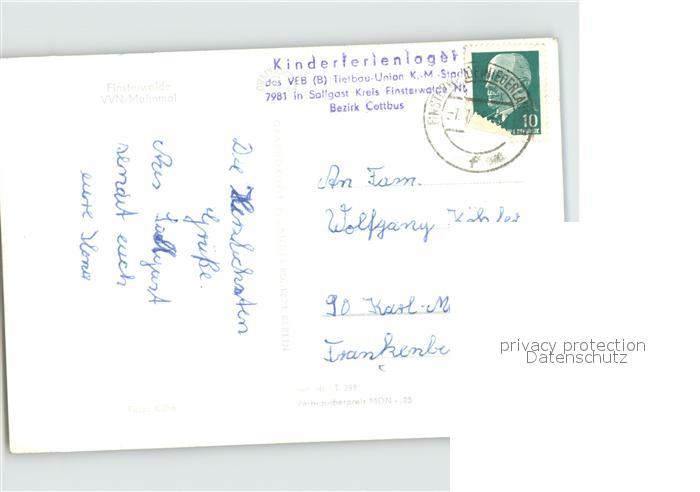 Finsterwalde
VVN-Mahnmal
Kinderferienlager
des VEB (B) Tiefbau-Union K.-M.-Stadt
7981 in Sallgast Kreis Finsterwalde
Bezirk Cottbus
10
Die Herzlichsten
Grüße.
Aus Sallgast
sendet euch
eure Ilona
An Fam.
Wolfgang
90 Karl-M
Frankenbe
privacy protection
Datenschutz
Verbraucherpreis MDN -,25